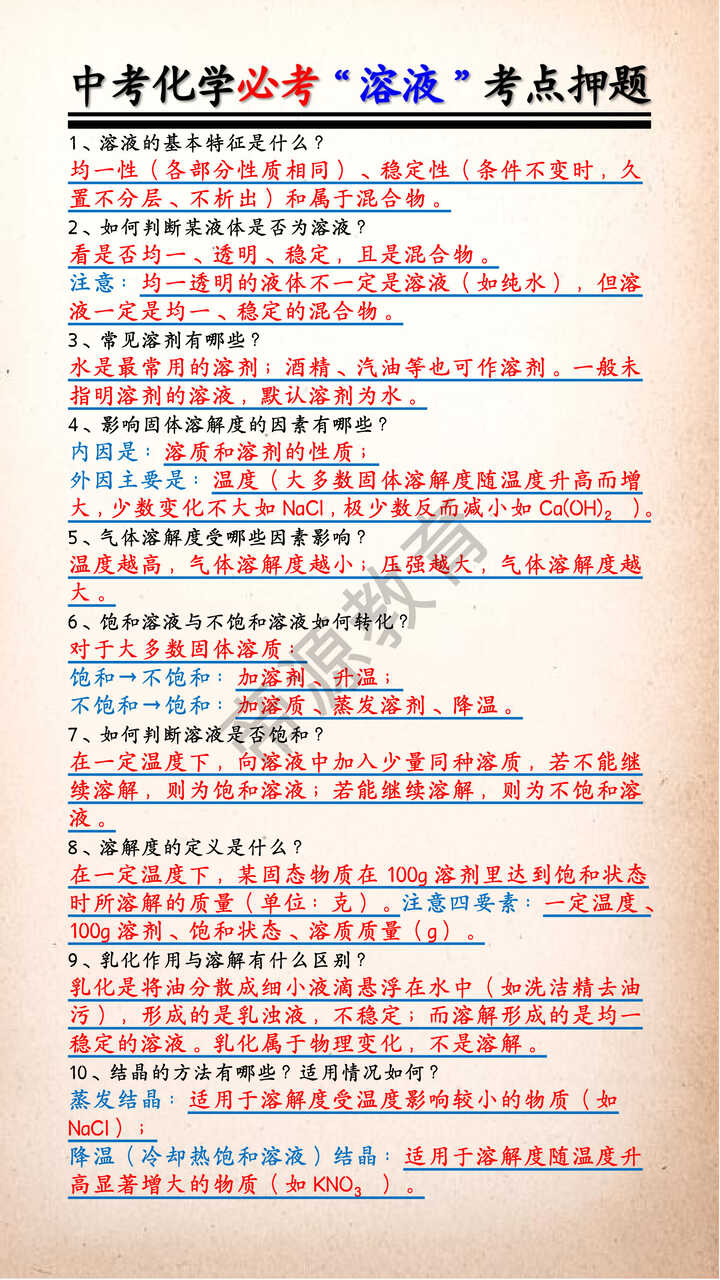 中考化学必考“溶液”考点押题
1、溶液的基本特征是什么？
均一性（各部分性质相同）、稳定性（条件不变时，久
置不分层、不析出）和属于混合物。
2、如何判断某液体是否为溶液？
看是否均一、透明、稳定，且是混合物。
注意：均一透明的液体不一定是溶液（如纯水），但溶
液一定是均一、稳定的混合物。
3、常见溶剂有哪些？
水是最常用的溶剂；酒精、汽油等也可作溶剂。一般未
指明溶剂的溶液，默认溶剂为水。
4、影响固体溶解度的因素有哪些？
内因是：溶质和溶剂的性质；
外因主要是：温度（大多数固体溶解度随温度升高而增
大，少数变化不大如 NaCl，极少数反而减小如 Ca(OH)₂ ）。
5、气体溶解度受哪些因素影响？
温度越高，气体溶解度越小；压强越大，气体溶解度越
大。
6、饱和溶液与不饱和溶液如何转化？
对于大多数固体溶质：
饱和→不饱和：加溶剂、升温；
不饱和→饱和：加溶质、蒸发溶剂、降温。
7、如何判断溶液是否饱和？
在一定温度下，向溶液中加入少量同种溶质，若不能继
续溶解，则为饱和溶液；若能继续溶解，则为不饱和溶
液。
8、溶解度的定义是什么？
在一定温度下，某固态物质在 100g 溶剂里达到饱和状态
时所溶解的质量（单位：克）。注意四要素：一定温度、
100g 溶剂、饱和状态、溶质质量（g）。
9、乳化作用与溶解有什么区别？
乳化是将油分散成细小液滴悬浮在水中（如洗洁精去油
污），形成的是乳浊液，不稳定；而溶解形成的是均一
稳定的溶液。乳化属于物理变化，不是溶解。
10、结晶的方法有哪些？适用情况如何？
蒸发结晶：适用于溶解度受温度影响较小的物质（如
NaCl）；
降温（冷却热饱和溶液）结晶：适用于溶解度随温度升
高显著增大的物质（如 KNO₃ ）。
帝源教育